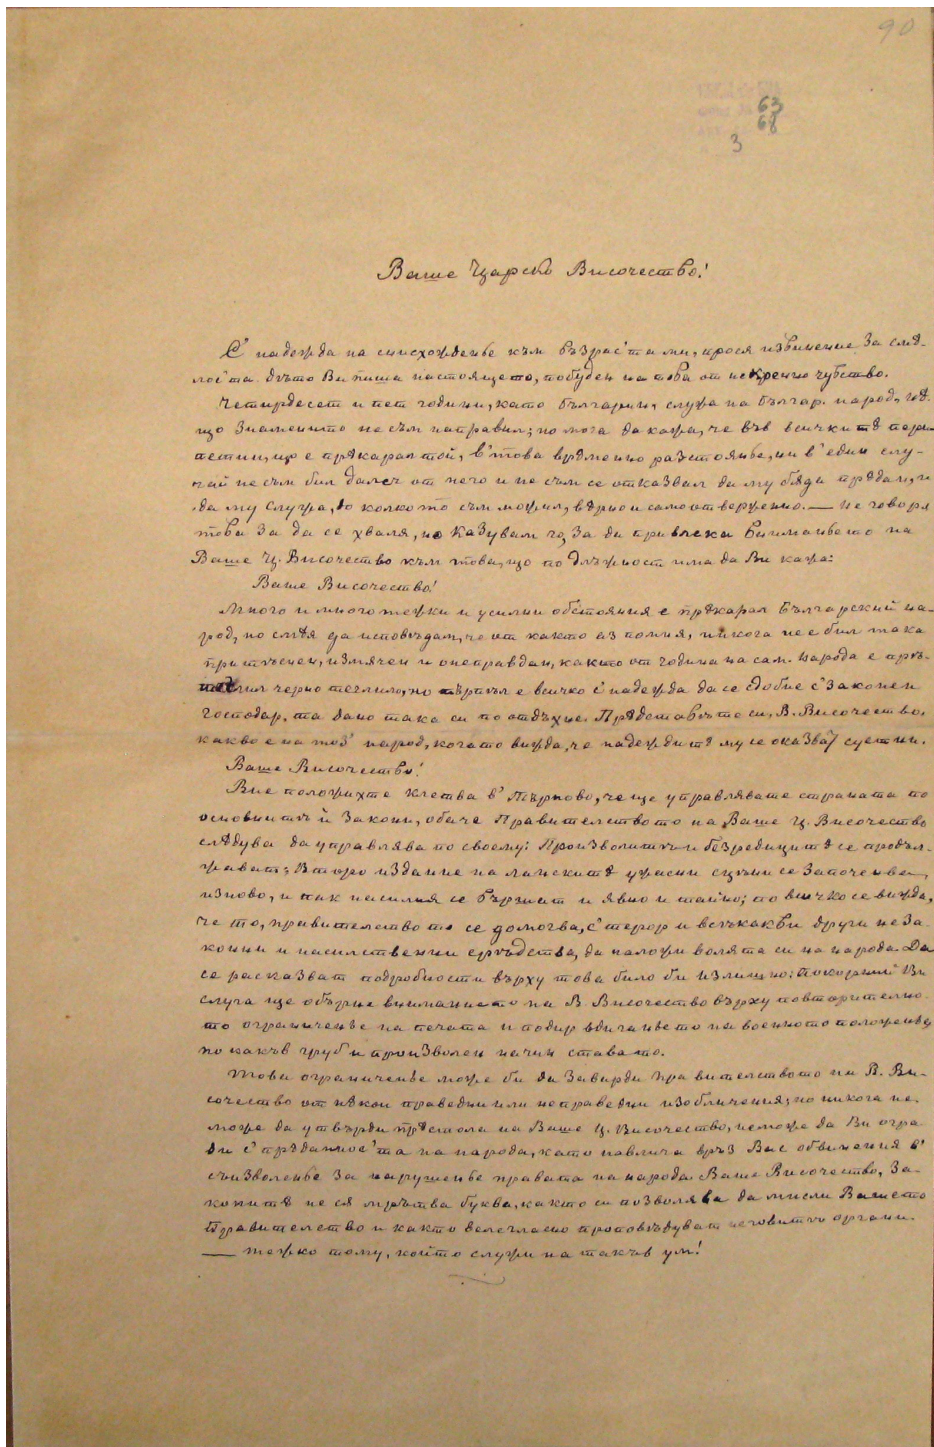 90
63
68
3
Ваше Царско Височество!
С' надежда на снисхожденье към възраст'та ми, прося извинение за смѣ-
лост'та дѣто Ви пиша настоящето, побуден на това от искренно чувство.
Четирдесет и пет години, като българин, служа на българ. народ, нѣ-
що знаменито не съм направил; но мога да кажа, че във всичкитѣ пери-
петии, що е прѣкарал той, в' това врѣменно разстоянье, ни в' един слу-
чай не съм бил далеч от него и не съм се отказвал да му бѫда прѣдан, и
да му служа, до колкото съм можил, вѣрно и самоотверженно. — Не говоря
това за да се хваля, но казувам го, за да привлека вниманьето на
Ваше Ц. Височество към това, що по длъжност има да Ви кажа:
Ваше Височество!
Много и много тежки и усилни обстояния е прѣкарал Българский на-
род, но смѣя да исповѣдам, че от както аз помня, никога не е бил така
притѣснен, измячен и онеправдан, както от година на сам. Народа е прѣ-
теглил черно теглило, но търпѣл е всичко с' надежда да се сдобие с' законен
господар, та дано така си по отдъхне. Прѣдставѣте си, В. Височество,
какво е на тоз' народ, когато вижда, че надеждитѣ му се оказват суетни.
Ваше Височество!
Вие положихте клетва в' Търново, че ще управлявате страната по
основнитѣ ѝ закони, обаче Правителството на Ваше Ц. Височество
слѣдува да управлява по своему: Произволитѣ и безредицитѣ се продъл-
жават; второ издание на ланскитѣ ужасни сцѣни се започенва
изново, и пак насилия се вършат и явно и тайно; по всичко се вижда,
че то, правителството се домогва, с' терор и всѣкакви други неза-
конни и насилственни срѣдства, да наложи волята си на народа. Да
се расказват подробности върху това било би излишно: покорний Ви
слуга ще обърне вниманието на В. Височество върху повторително-
то ограниченье на печата и подир вдиганьето на военното положенье,
по какъв груб и произволен начин става то.
Това ограниченье може би да завърди правителството на В. Ви-
сочество от нѣкои праведни или неправедни изобличения; но никога не
може да утвърди прѣстола на Ваше Ц. Височество, не може да Ви огра-
ди с' прѣданност'та на народа, като навлича връз Вас обвинения в'
съизволенье за нарушенье правата на народа. Ваше Височество, за-
конитѣ не са мрътва буква, както си позволява да мисли Вашето
Правителство и както велегласно проповѣдуват неговитѣ органи.
— Тежко тому, който служи на такъв ум!